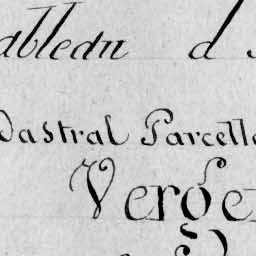 ableau d
Castral Parcell
Verge